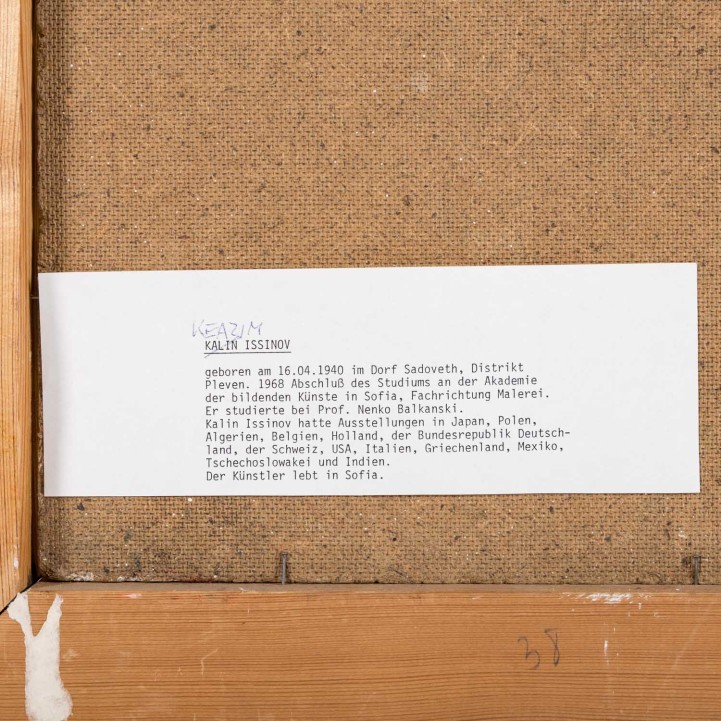 KEAZIM
KALIN ISSINOV
geboren am 16.04.1940 im Dorf Sadoveth, Distrikt
Pleven. 1968 Abschluß des Studiums an der Akademie
der bildenden Künste in Sofia, Fachrichtung Malerei.
Er studierte bei Prof. Nenko Balkanski.
Kalin Issinov hatte Ausstellungen in Japan, Polen,
Algerien, Belgien, Holland, der Bundesrepublik Deutsch-
land, der Schweiz, USA, Italien, Griechenland, Mexiko,
Tschechoslowakei und Indien.
Der Künstler lebt in Sofia.
38